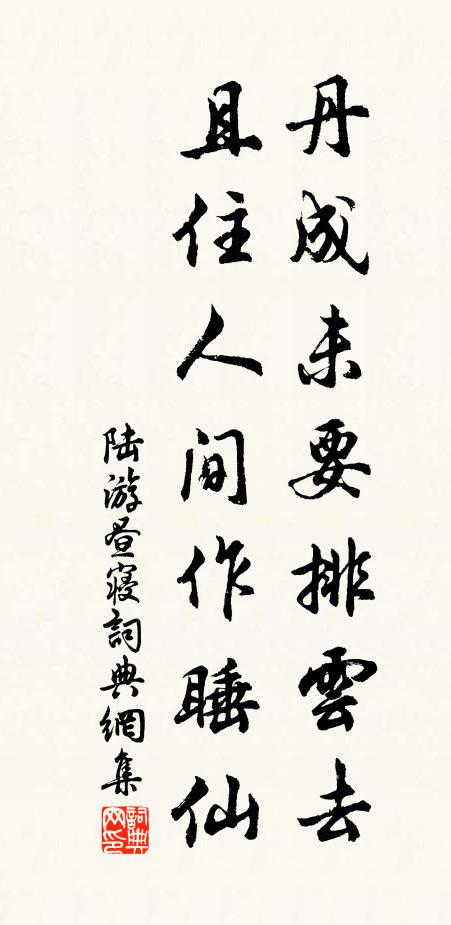 丹成未要排雲去
且住人间作睡仙
陆游昼寝詞典網集
詞典网印